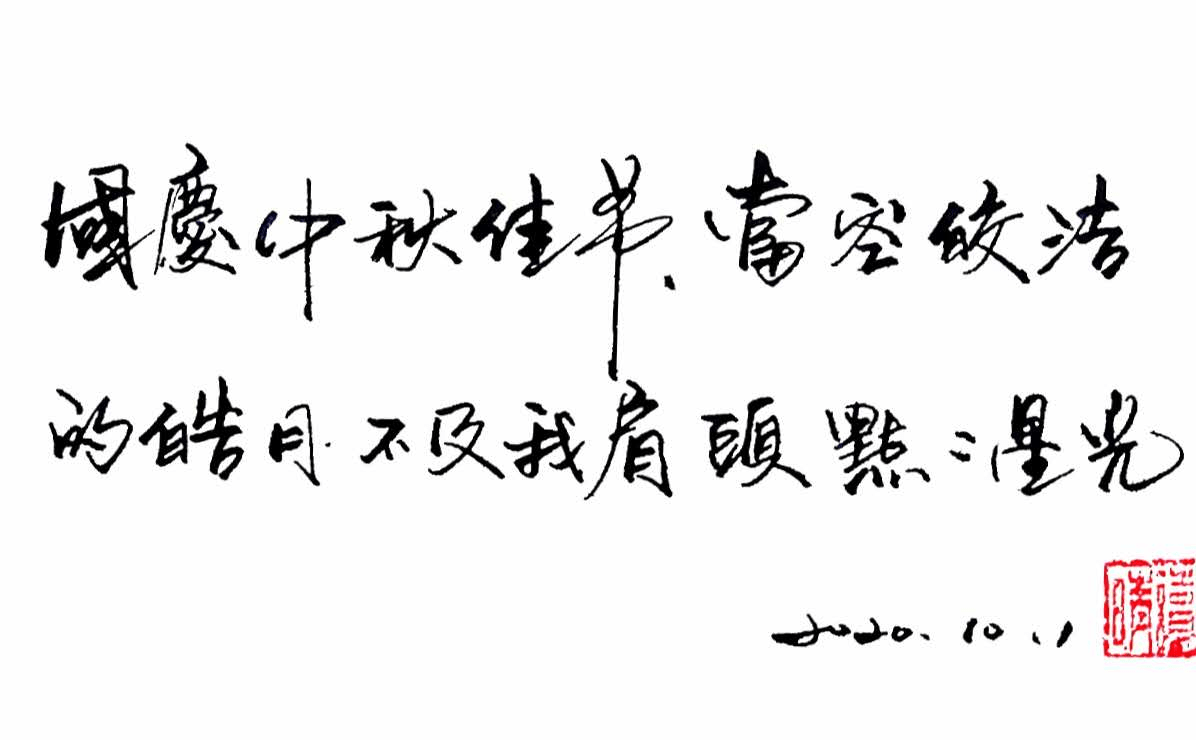 國慶中秋佳节、當空皎洁
的皓月不及我肩頭點々星光
2020.10.1